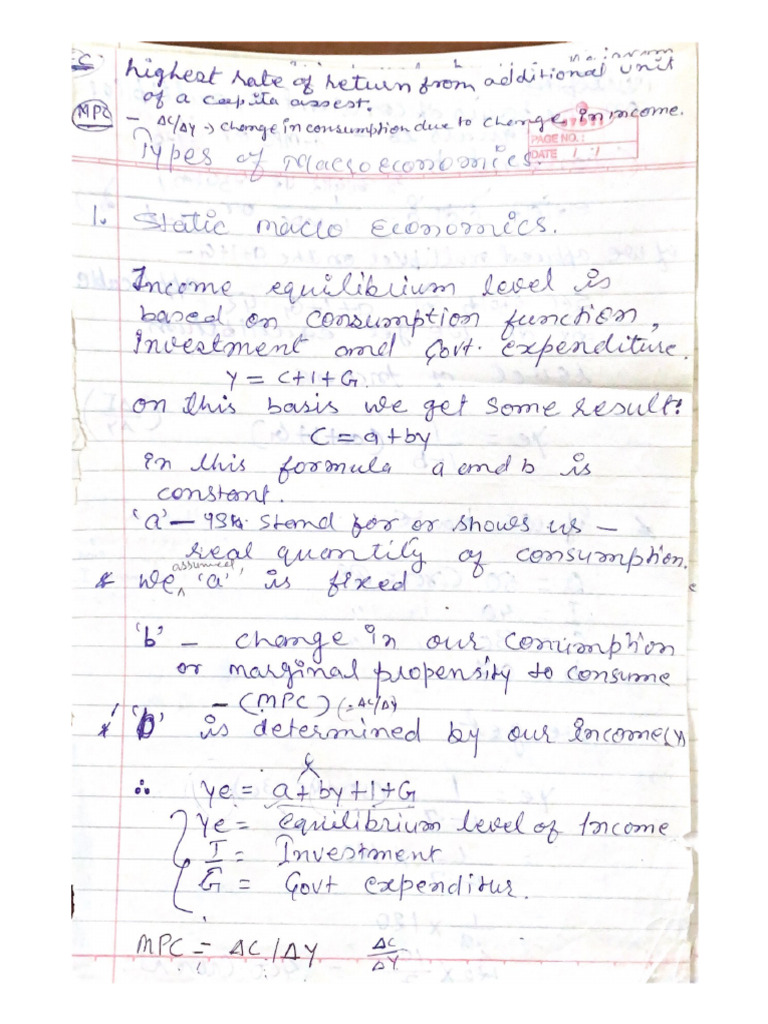 highest rate of return from additional unit
of a capita assest.
MPC
- ΔC/ΔY → change in consumption due to change in income.
PAGE NO.:
DATE / /
Types of Macroeconomics.
1. Static macro Economics.
Income equilibrium level is
based on consumption function,
Investment and Govt. expenditure.
Y = C+I+G.
on this basis we get some result:
C = a+by
in this formula a and b is
constant.
'a' - stand for or shows us -
real quantity of consumption.
* we assumed 'a' is fixed
'b' - change in our conumption
or marginal propensity to consume
- (MPC) (=ΔC/ΔY)
* 'b' is determined by our income(Y)
C
∴ Ye = a+by+I+G
Ye = equilibrium level of Income
I = Investment
G = Govt expenditur.
MPC = ΔC/ΔY ΔC/ΔY